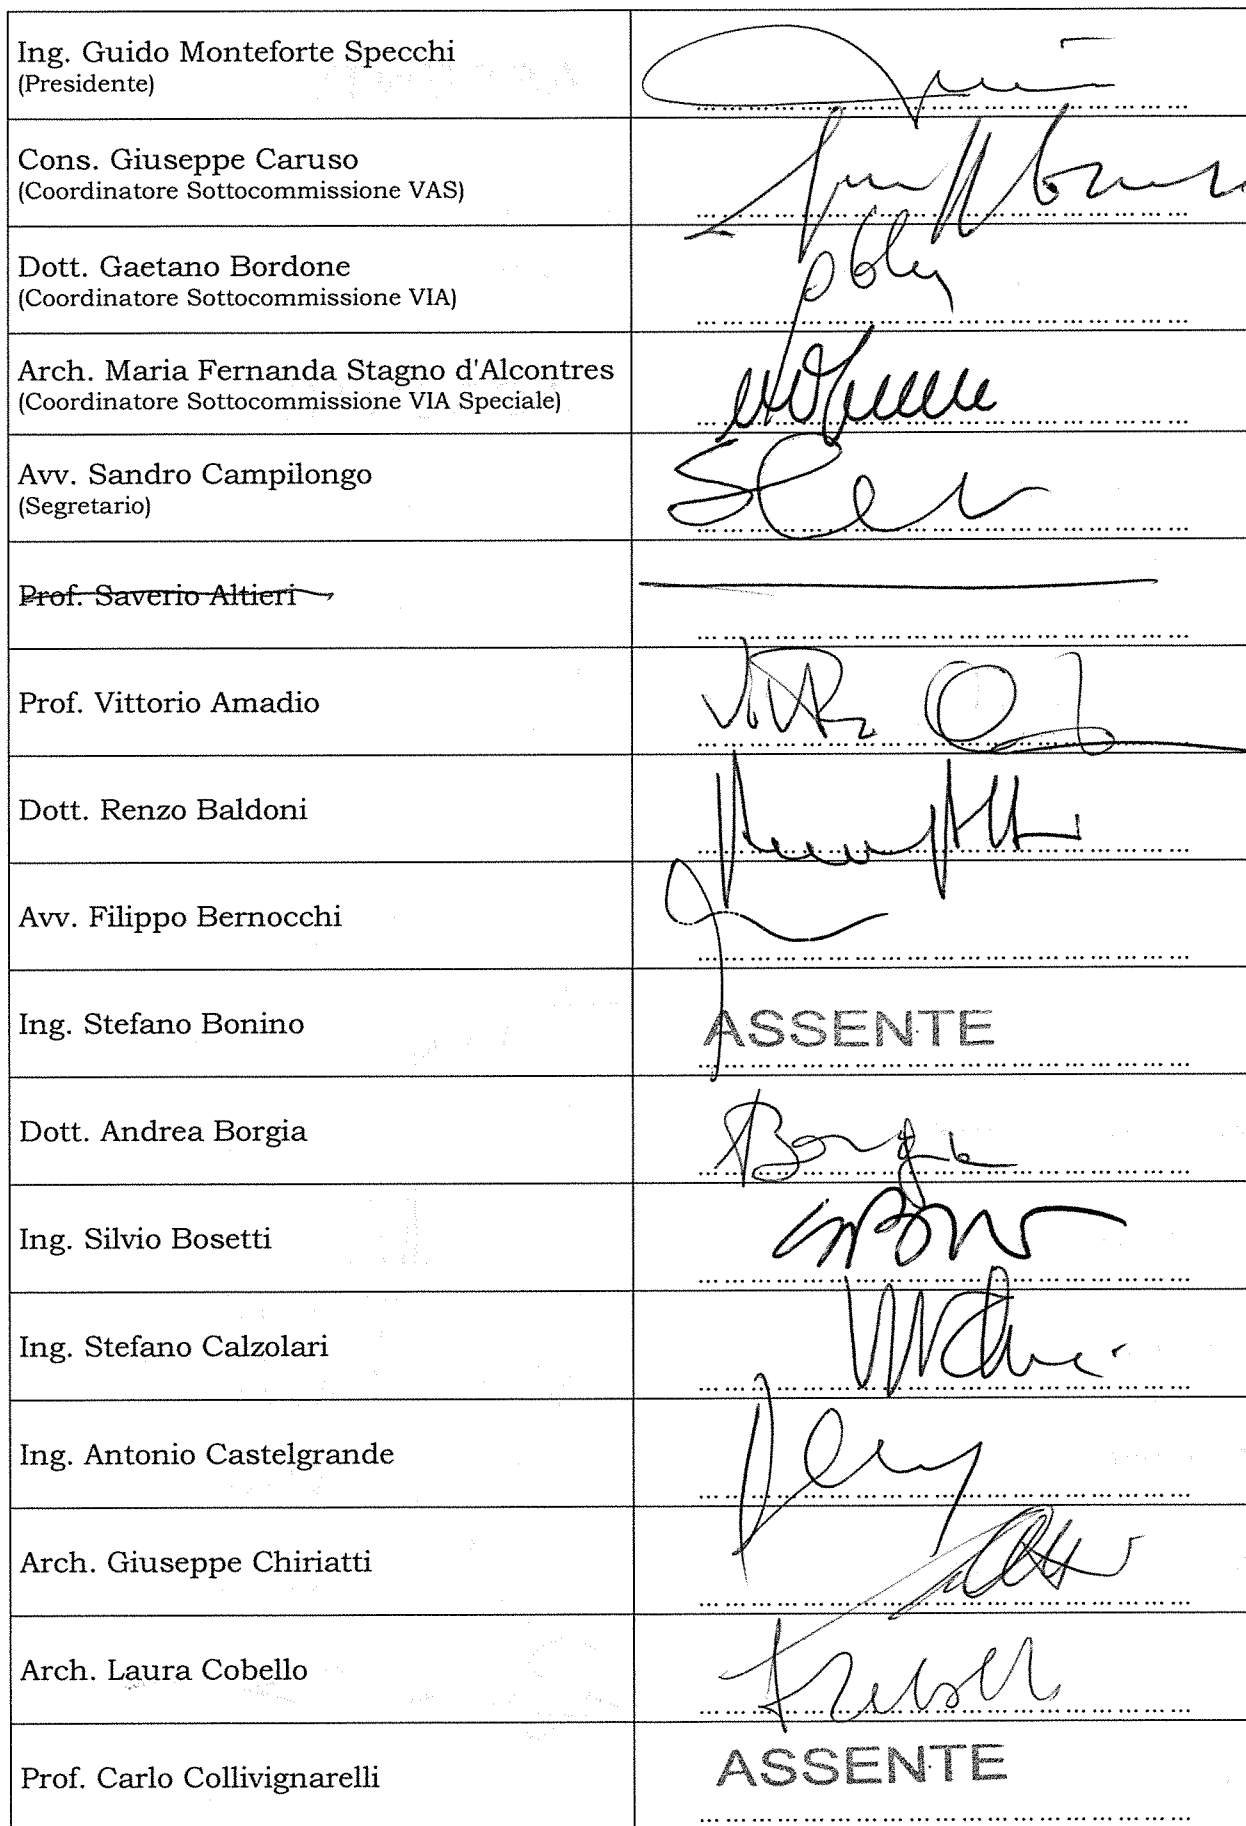 Ing. Guido Monteforte Specchi
(Presidente)
Cons. Giuseppe Caruso
(Coordinatore Sottocommissione VAS)
Dott. Gaetano Bordone
(Coordinatore Sottocommissione VIA)
Arch. Maria Fernanda Stagno d'Alcontres
(Coordinatore Sottocommissione VIA Speciale)
Avv. Sandro Campilongo
(Segretario)
Prof. Saverio Altieri
Prof. Vittorio Amadio
Dott. Renzo Baldoni
Avv. Filippo Bernocchi
Ing. Stefano Bonino
ASSENTE
Dott. Andrea Borgia
Ing. Silvio Bosetti
Ing. Stefano Calzolari
Ing. Antonio Castelgrande
Arch. Giuseppe Chiriatti
Arch. Laura Cobello
Prof. Carlo Collivignarelli
ASSENTE